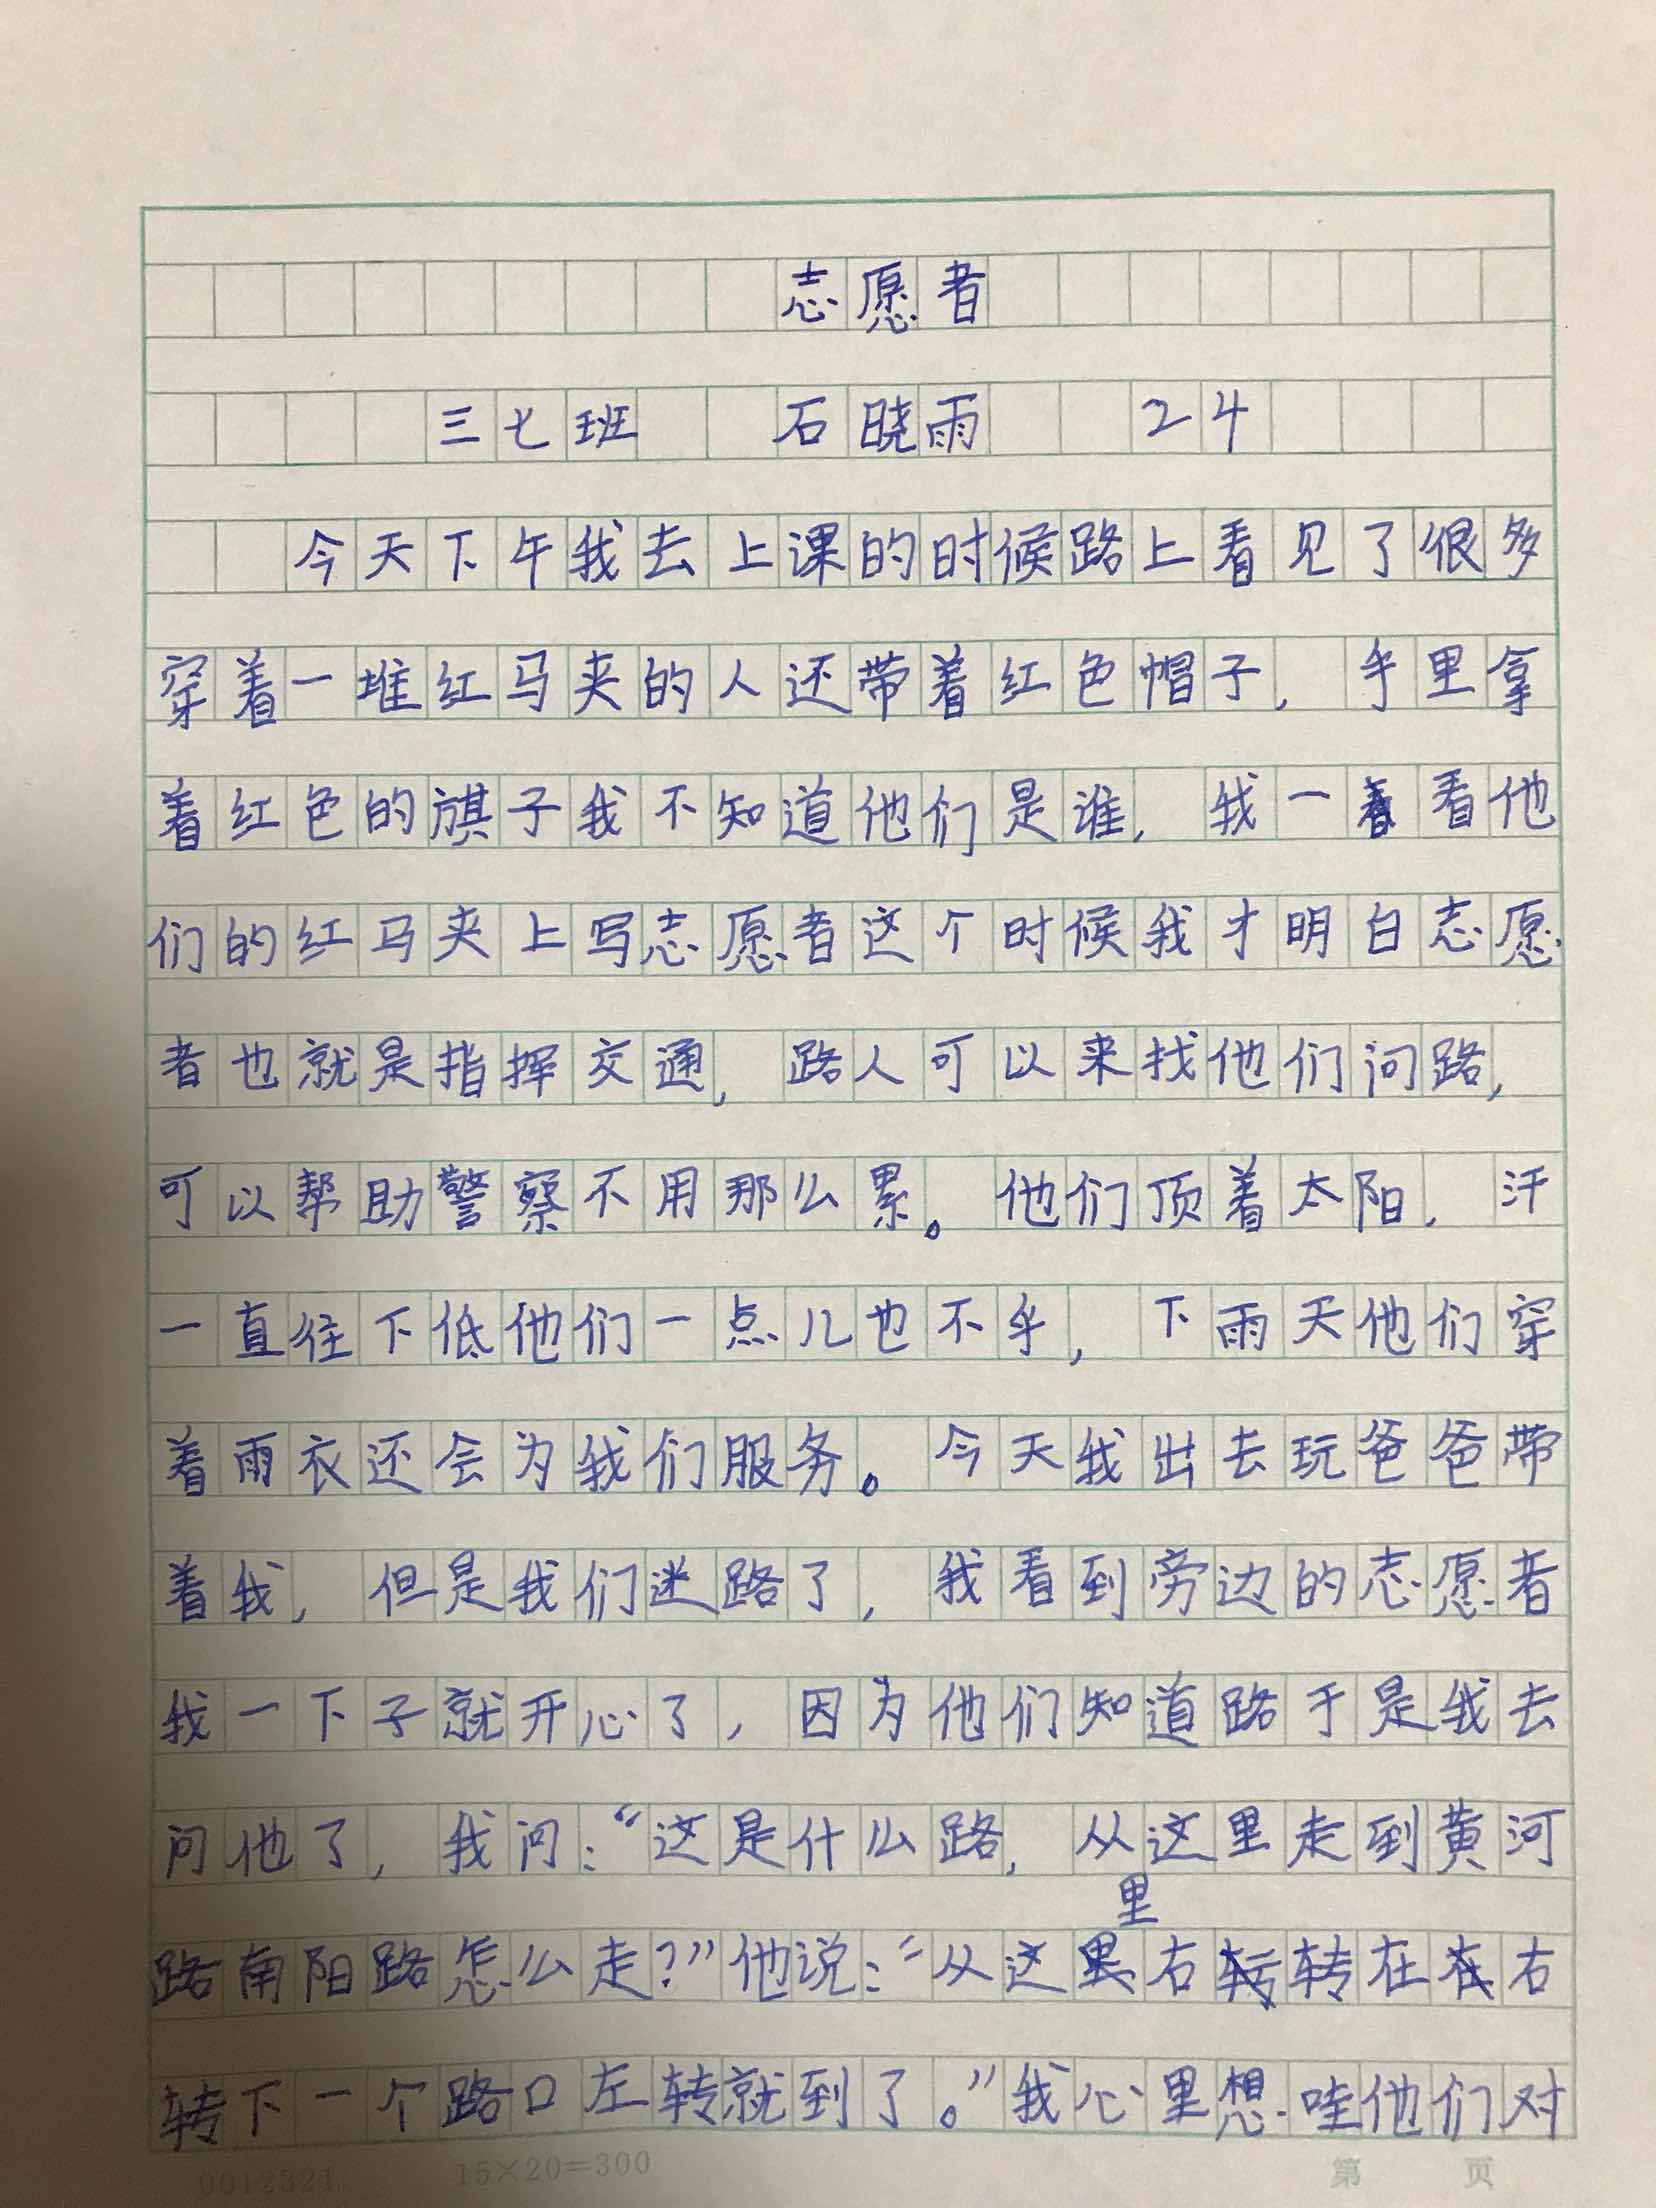 志愿者
三七班 石晓雨 24
今天下午我去上课的时候路上看见了很多
穿着一堆红马夹的人还带着红色帽子，手里拿
着红色的旗子我不知道他们是谁，我一看他
们的红马夹上写志愿者这个时候我才明白志愿
者也就是指挥交通，路人可以来找他们问路，
可以帮助警察不用那么累。他们顶着太阳，汗
一直往下低他们一点儿也不乎，下雨天他们穿
着雨衣还会为我们服务。今天我出去玩爸爸带
着我，但是我们迷路了，我看到旁边的志愿者
我一下子就开心了，因为他们知道路于是我去
问他了，我问：“这是什么路，从这里走到黄河
路南阳路怎么走？”他说：“从这里右转在右
转下一个路口左转就到了。”我心里想哇他们对
0012321 15×20=300 第 页